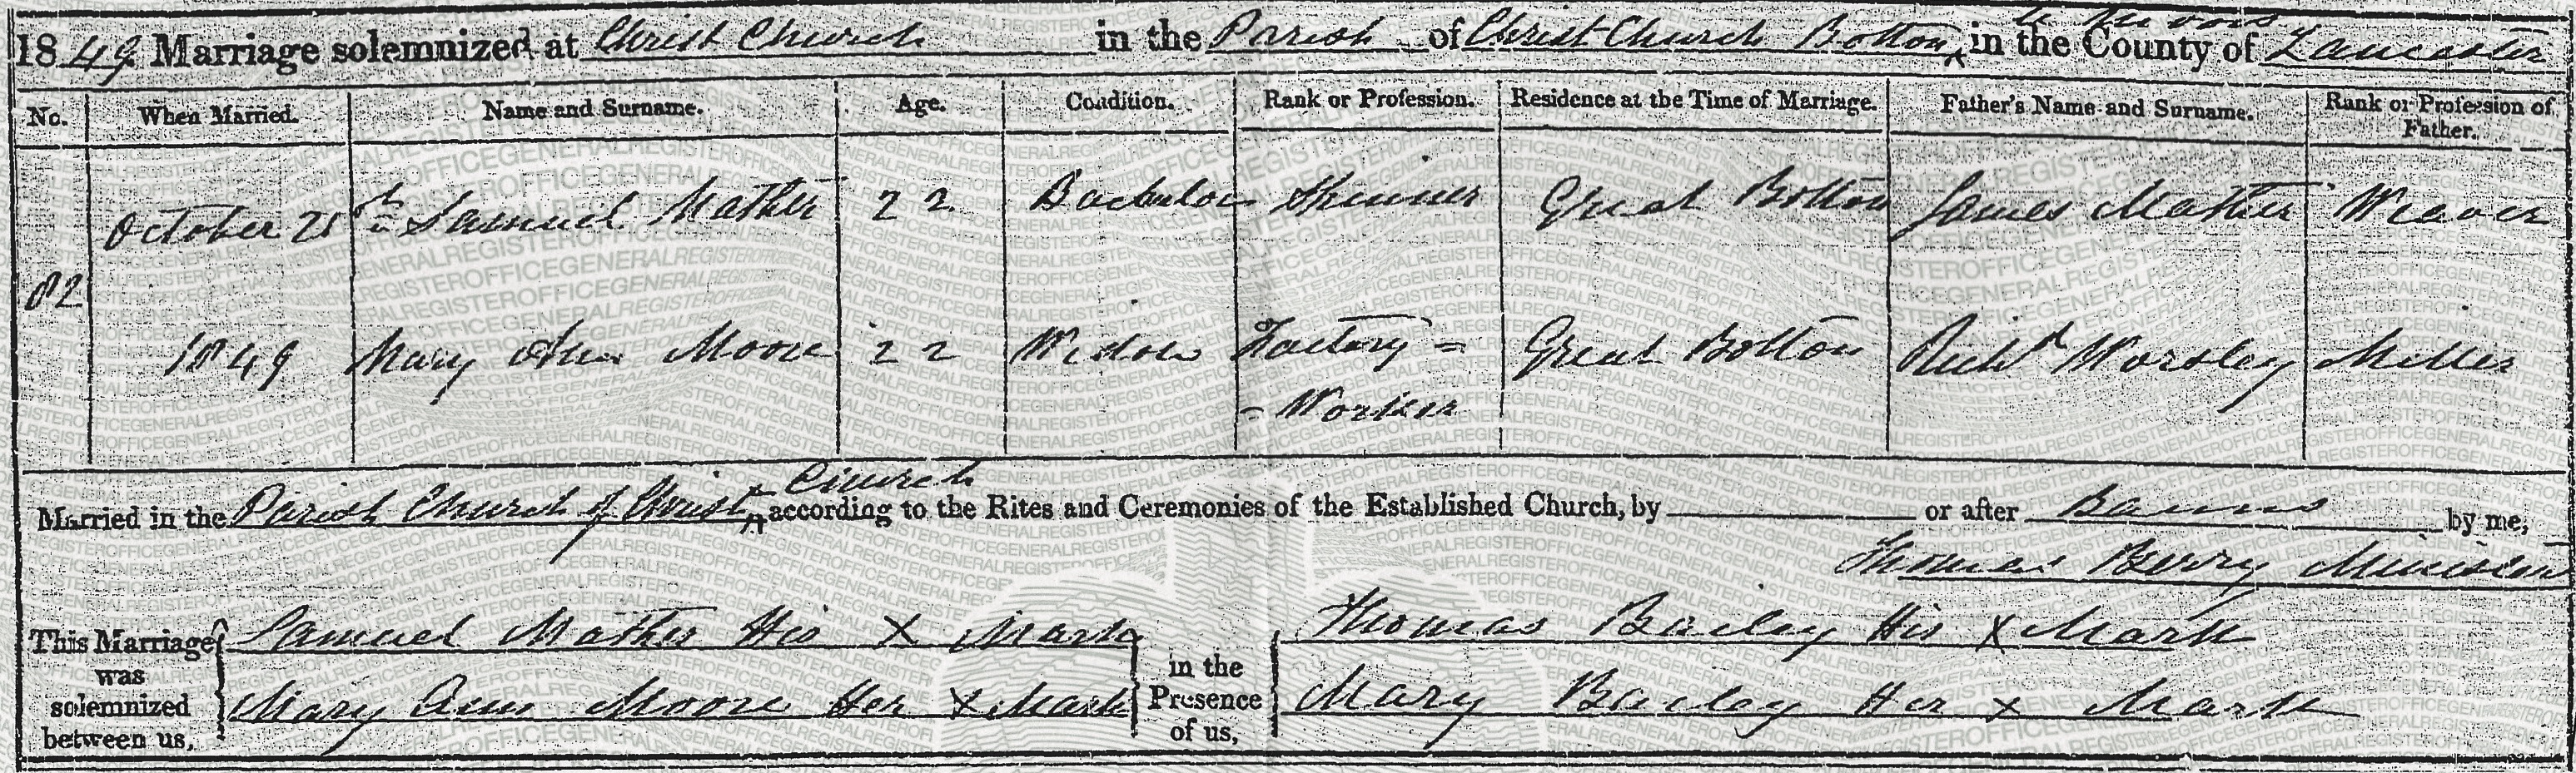 le Moors
1849 Marriage solemnized at Christ Church in the Parish of Christ Church Bolton in the County of Lancaster
No. When Married. Name and Surname. Age. Condition. Rank or Profession. Residence at the Time of Marriage. Father's Name and Surname. Rank or Profession of Father.
October 28th Samuel Mather 22 Bachelor Spinner Great Bolton James Mather Weaver
82
1849 Mary Ann Moore 22 Widow Factory = Great Bolton Richd Worsley Miller
= Worker
Church
Married in the Parish Church of Christ according to the Rites and Ceremonies of the Established Church, by or after Banns by me,
Thomas Berry Minister
This Marriage was solemnized between us, Samuel Mather His X Mark in the Presence of us, Thomas Bailey His X Mark
Mary Ann Moore Her X Mark Mary Bailey Her X Mark